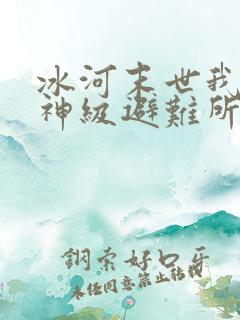 冰河末世我
神級避難所
鋼索好口牙
未经同意禁止转载